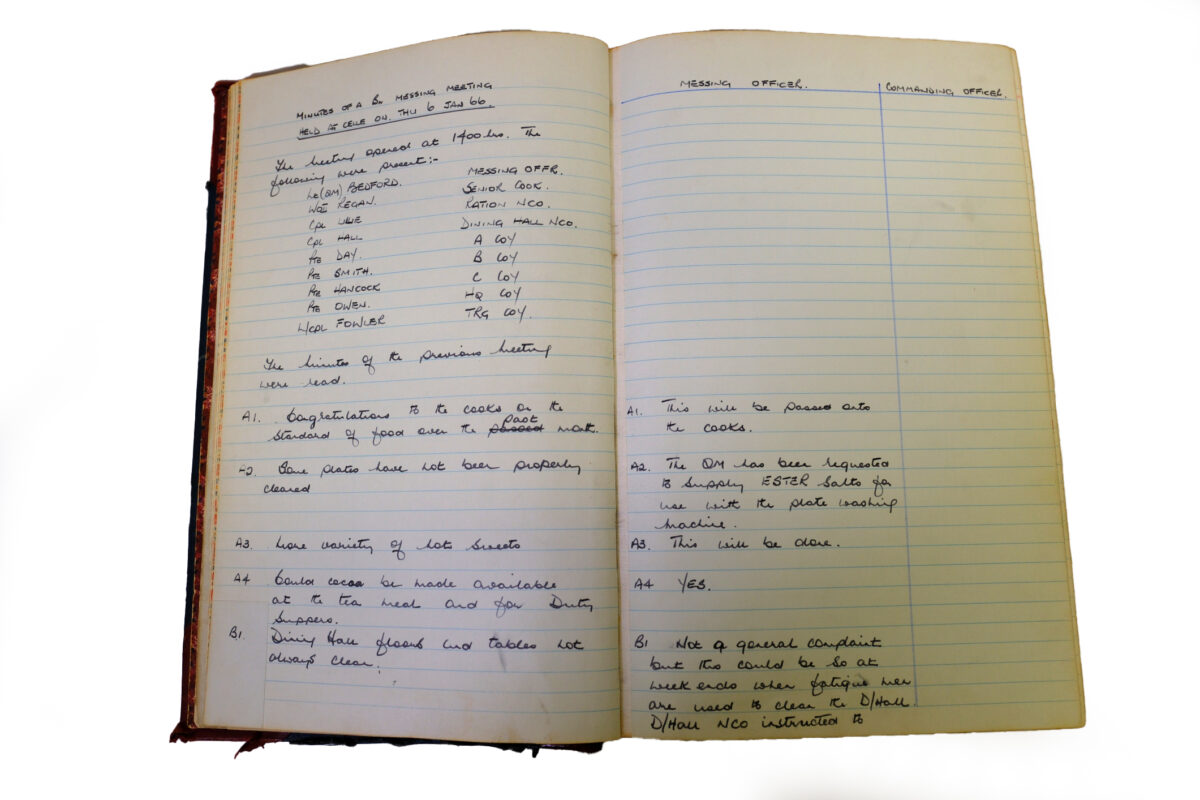 MINUTES OF A BN MESSING MEETING
HELD AT CELLE ON. THU 6 JAN 66.
The meeting opened at 1400 hrs. The
following were present:-
Lt(QM) BEDFORD. MESSING OFFR.
WOII REGAN. SENIOR COOK.
Cpl RATION NCO.
Cpl HALL DINING HALL NCO.
Pte DAY. A COY
Pte SMITH. B COY
Pte HANCOCK C COY
Pte OWEN. HQ COY
L/Cpl FOWLER TRG COY.
The minutes of the previous meeting
were read.
A1. Congratulations to the cooks on the
past
standard of food over the passed month.
A2. Some plates have not been properly
cleared
A3. More variety of hot sweets
A4 Could cocoa be made available
at the tea meal and for Duty
Suppers.
B1. Dining Hall floors and tables not
always clean.
MESSING OFFICER. COMMANDING OFFICER.
A1. This will be passed onto
the cooks.
A2. The QM has been requested
to supply ESTER salts for
use with the plate washing
machine.
A3. This will be done.
A4 YES.
B1 Not a general complaint
but this could be so at
week ends when fatigue men
are used to clean the D/Hall.
D/Hall NCO instructed to